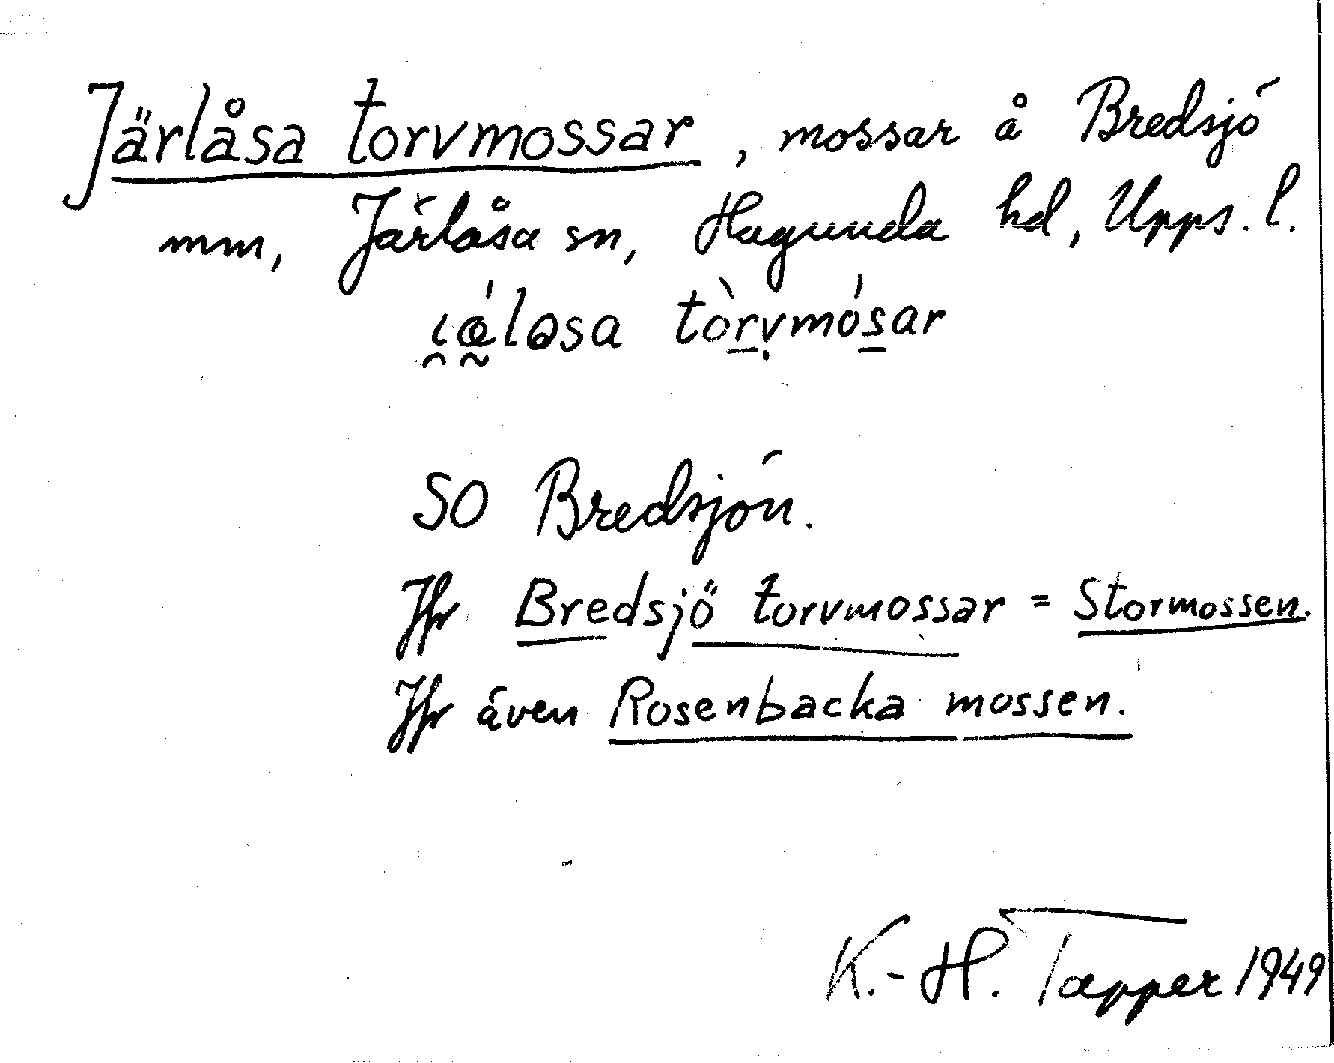 Järlåsa torvmossar, mossar å Bredsjö
mm, Järlåsa sn, Hagunda hd, Upps. l.
torvmosar
SO Bredsjön.
Jfr Bredsjö torvmossar = Stormossen.
Jfr även Rosenbacka mossen.
K.-H. Tapper 1949